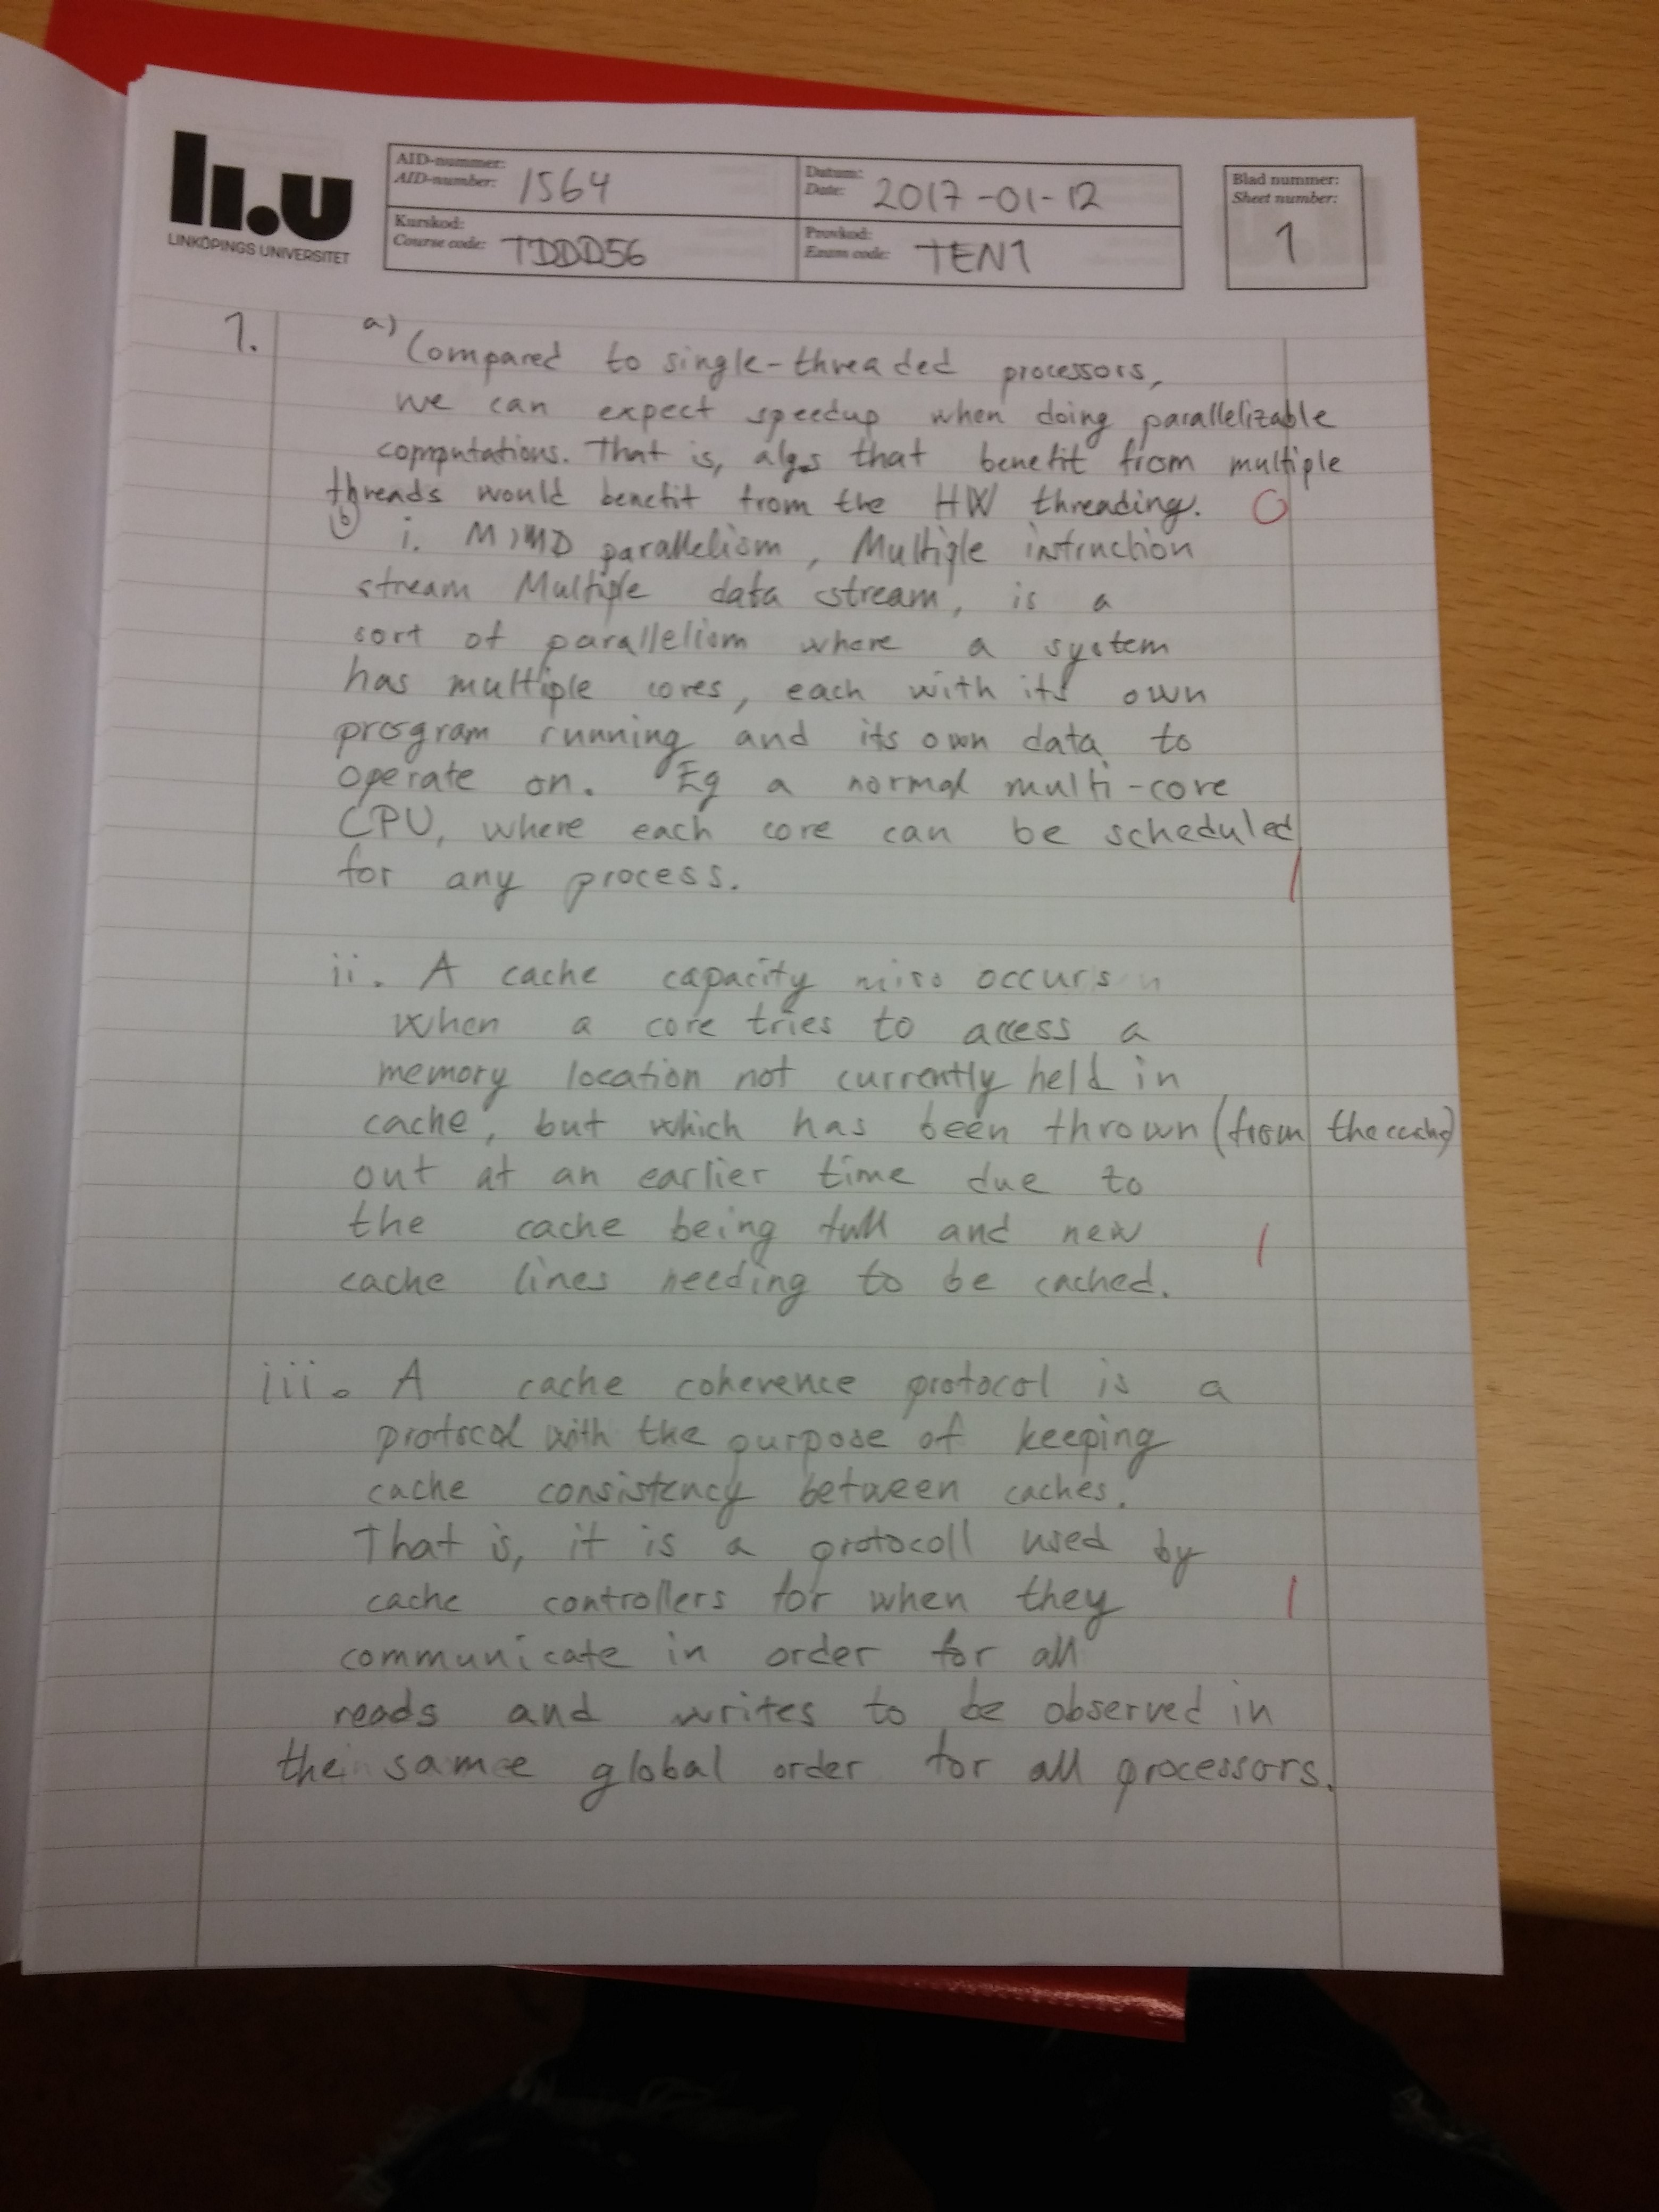 li.u
LINKÖPINGS UNIVERSITET
AID-nummer:
AID-number: 1564
Datum:
Date: 2017-01-12
Blad nummer:
Sheet number:
1
Kurskod:
Course code: TDDD56
Provkod:
Exam code: TEN1
1. a) Compared to single-threaded processors,
we can expect speedup when doing parallelizable
computations. That is, algs that benefit from multiple
threads would benefit from the HW threading. 0
b) i. MIMD parallelism, Multiple intruction
stream Multiple data stream, is a
sort of parallelism where a system
has multiple cores, each with its own
program running and its own data to
operate on. Eg a normal multi-core
CPU, where each core can be scheduled
for any process. 1
ii. A cache capacity miss occurs
when a core tries to access a
memory location not currently held in
cache, but which has been thrown (from the cache)
out at an earlier time due to
the cache being full and new 1
cache lines needing to be cached.
iii. A cache coherence protocol is a
protocol with the purpose of keeping
cache consistency between caches.
That is, it is a protocoll used by
cache controllers for when they 1
communicate in order for all
reads and writes to be observed in
the same global order for all processors.